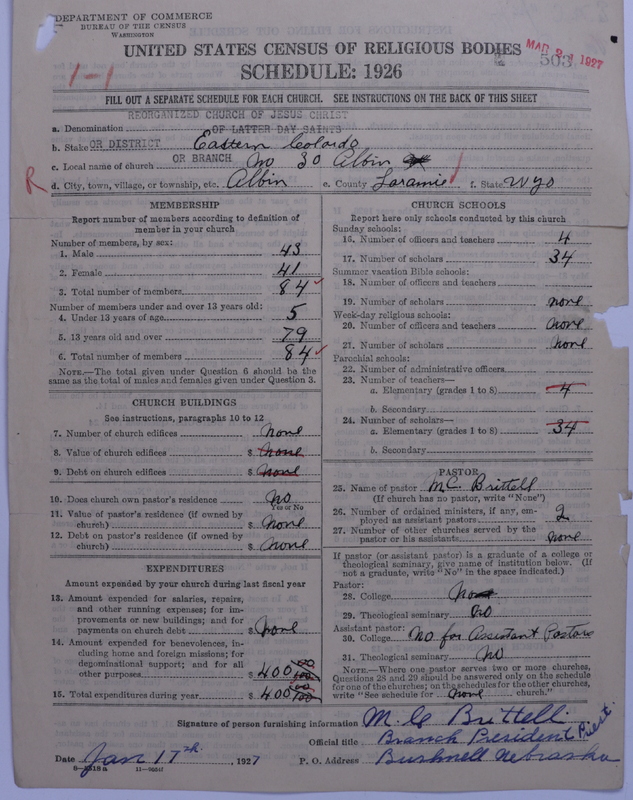 DEPARTMENT OF COMMERCE
BUREAU OF THE CENSUS
WASHINGTON
UNITED STATES CENSUS OF RELIGIOUS BODIES
MAR 2 1927
503
SCHEDULE: 1926
1-1
FILL OUT A SEPARATE SCHEDULE FOR EACH CHURCH. SEE INSTRUCTIONS ON THE BACK OF THIS SHEET
REORGANIZED CHURCH OF JESUS CHRIST
a. Denomination OF LATTER DAY SAINTS
b. Stake OR DISTRICT Eastern Colorado
c. Local name of church OR BRANCH No 30 Albin
R d. City, town, village, or township, etc. Albin e. County Laramie f. State Wyo
MEMBERSHIP
Report number of members according to definition of
member in your church
Number of members, by sex:
1. Male 43
2. Female 41
3. Total number of members 84
Number of members under and over 13 years old:
4. Under 13 years of age 5
5. 13 years old and over 79
6. Total number of members 84
NOTE.—The total given under Question 6 should be
same as the total of males and females given under Question 3.
CHURCH BUILDINGS
See instructions, paragraphs 10 to 12
7. Number of church edifices None
8. Value of church edifices $ None
9. Debt on church edifices $ None
10. Does church own pastor's residence No
Yes or No
11. Value of pastor's residence (if owned by
church) $ None
12. Debt on pastor's residence (if owned by
church) $ None
EXPENDITURES
Amount expended by your church during last fiscal year
13. Amount expended for salaries, repairs,
and other running expenses; for im-
provements or new buildings; and for
payments on church debt $ None
14. Amount expended for benevolences, in-
cluding home and foreign missions; for
denominational support; and for all
other purposes $ 400 00/100
15. Total expenditures during year $ 400 00/100
CHURCH SCHOOLS
Report here only schools conducted by this church
Sunday schools:
16. Number of officers and teachers 4
17. Number of scholars 34
Summer vacation Bible schools:
18. Number of officers and teachers
19. Number of scholars none
Week-day religious schools:
20. Number of officers and teachers none
21. Number of scholars none
Parochial schools:
22. Number of administrative officers
23. Number of teachers—
a. Elementary (grades 1 to 8) 4
b. Secondary
24. Number of scholars—
a. Elementary (grades 1 to 8) 34
b. Secondary
PASTOR
25. Name of pastor M C Brittell
(If church has no pastor, write "None")
26. Number of ordained ministers, if any, em-
ployed as assistant pastors 2
27. Number of other churches served by the
pastor or his assistants none
If pastor (or assistant pastor) is a graduate of a college or
theological seminary, give name of institution below. (If
not a graduate, write "No" in the space indicated.)
Pastor:
28. College No
29. Theological seminary No
Assistant pastor:
30. College No for Assistant Pastors
31. Theological seminary No
NOTE.—Where one pastor serves two or more churches,
Questions 28 and 29 should be answered only on the schedule
for one of the churches; on the schedules for the other churches,
write "See schedule for none church."
Signature of person furnishing information M. C Brittell
Official title Branch President Priest
Date Jan 17th, 1927 P. O. Address Bushnell Nebraska
8—1518 a 11—9654